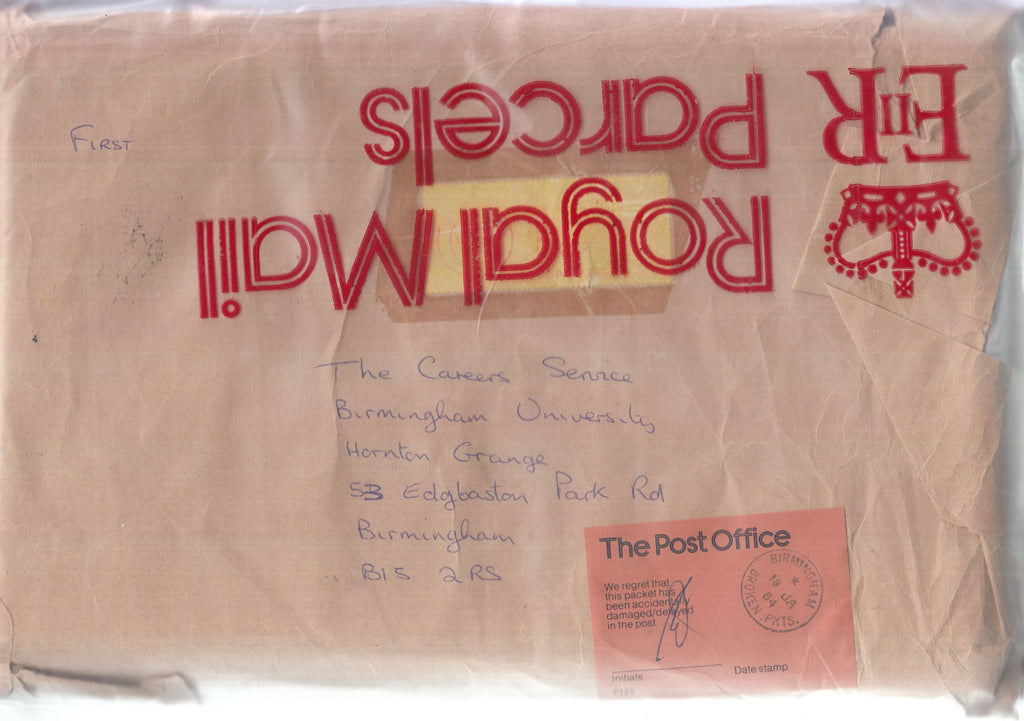 Parcels
EIIR
Royal Mail
First
The Careers Service
Birmingham University
Hornton Grange
53 Edgbaston Park Rd
Birmingham
B15 2RS
The Post Office
We regret that
this packet has
been accidentally
damaged/delayed
in the post
Initials
Date stamp
P135
BIRMINGHAM
19 JA
84
BROKEN PKTS.